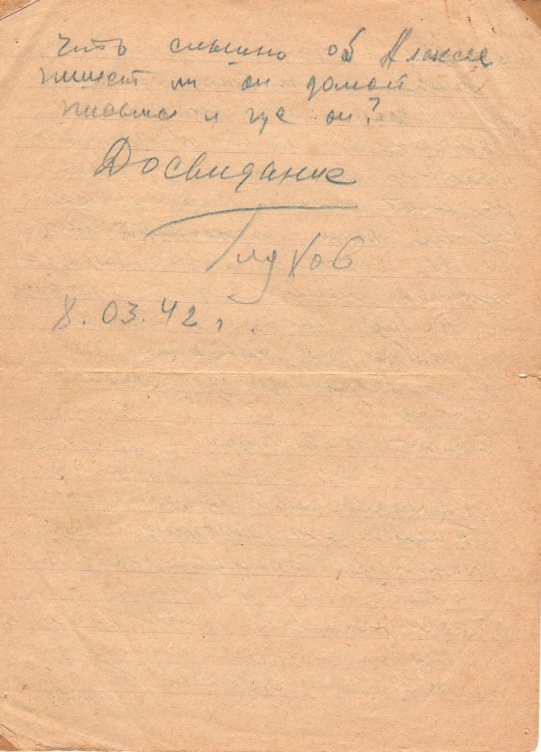 Чить слышно об Алексее
пишет ли он домой
письма и где он?
Досвидание
Глухов
8.03.42 г.